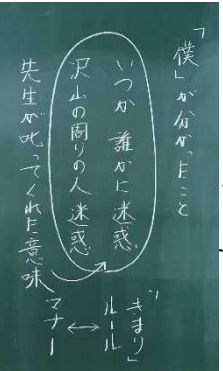 「僕」が分かったこと
いつか 誰かに迷惑
沢山の周りの人 迷惑
先生が叱ってくれた意味
"きまり"
ルール
↔
マナー